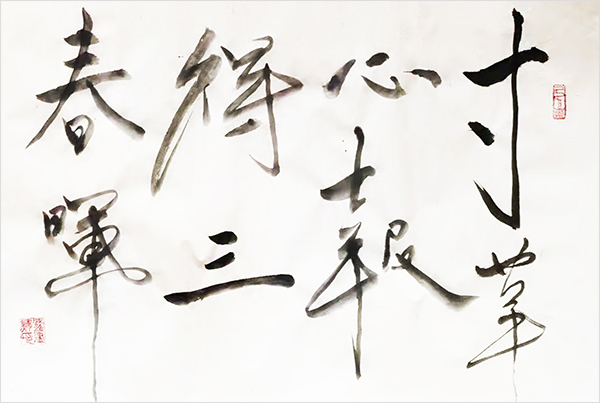 寸草
心報
得三
春暉